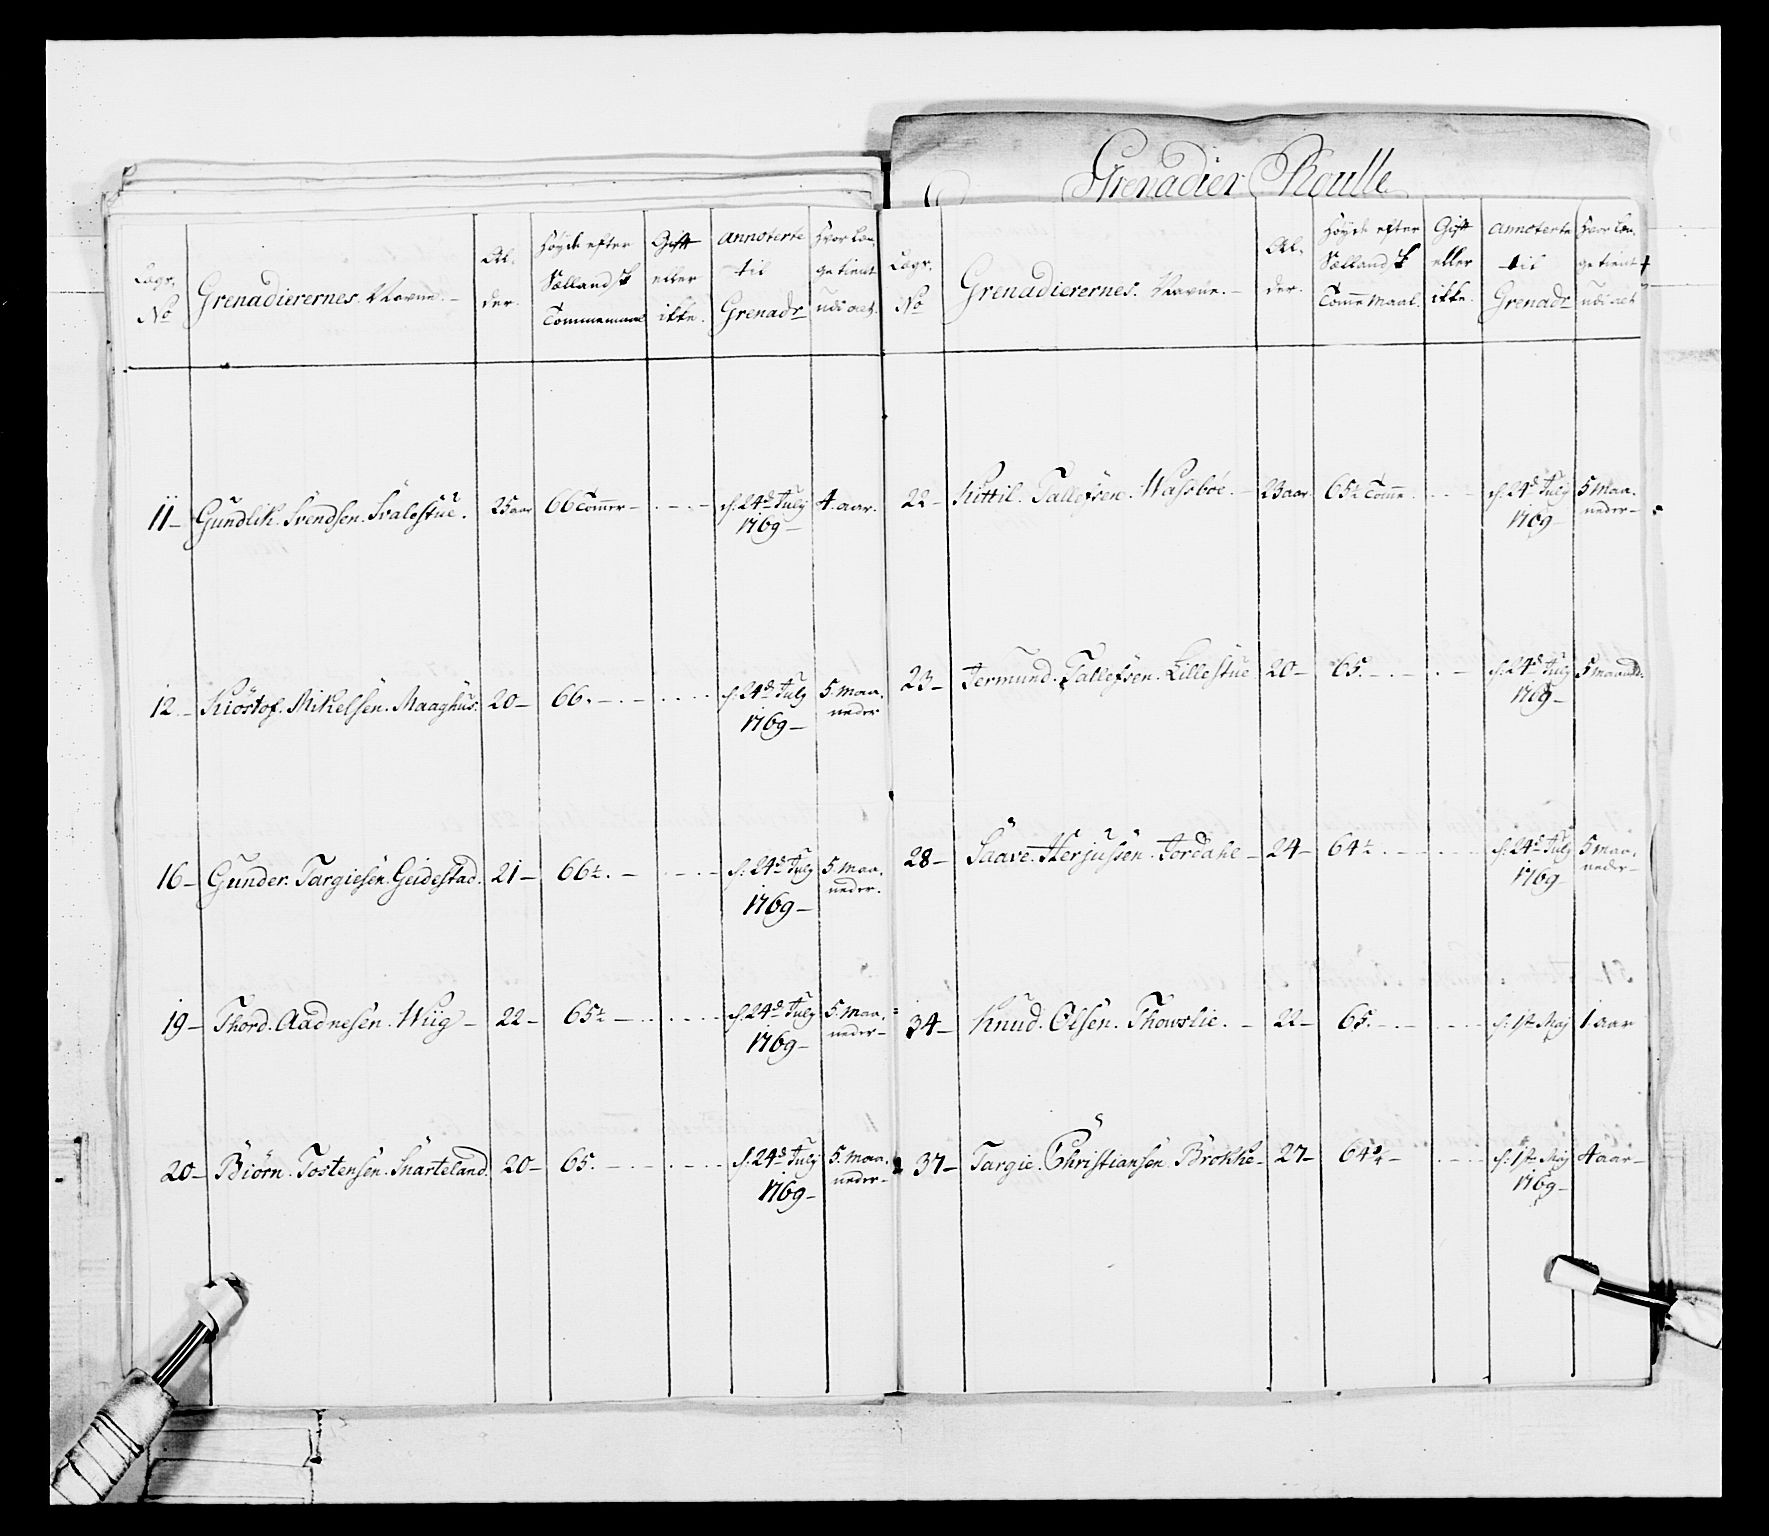 Grenadier Roulle
Lægs No
Grenadierernes Navne.
Al-
der.
Høyde efter
Sællandsk
Tommemaal
Gift
eller
ikke.
annoterte
til
Grenadr
Hvor Læn-
ge tient
udi alt.
11 – Gundlik Svendsen Svalestue. 25 aar 66 Tommer – d. 24de July 4 aar.
1769 –
12 – Kiøstof Mikelsen Maaghus. 20 – 66. – d. 24de July 5 Maa-
1769 – neder
16 – Gunder Targiesen Geidestad. 21 – 66 1/2. – d. 24de July 5 Maa-
1769 – neder.
19 – Thord Aadnesen Wiig – 22 – 65 1/2 – d. 24de July 5 Maa-
1769 – neder –
20 – Biørn Tostensen Snarteland. 20 – 65. – d. 24de July 5 Maa-
1769 – neder –
Lægs No
Grenadierernes Navne. –
Al-
der.
Høyde efter
Sællandsk
Tomme Maal.
Gift
eller
ikke.
annoterte
til
Grenadr
Hvor Læn-
ge tient
udi alt
22 – Kittil Tallefsen Wassboe. – 23 aar 65 1/2 Tomme d. 24de July 5 Maa-
1769 – neder –
23 – Jermund Tallefsen Lillestue 20 – 65. – d. 24de July 5 Maand.
1769 –
28 – Saave Herjussen Jordahl – 24 – 64 1/2 – d. 24de July 5 Maa-
1769 neder –
34 – Knud Olsen Thowslie. – 22 – 65. – d. 1te Maj 1 aar
37 – Targie Christiansen Brokke – 27 – 64 3/4 – d. 1te Maj 4 aar –
1769 –